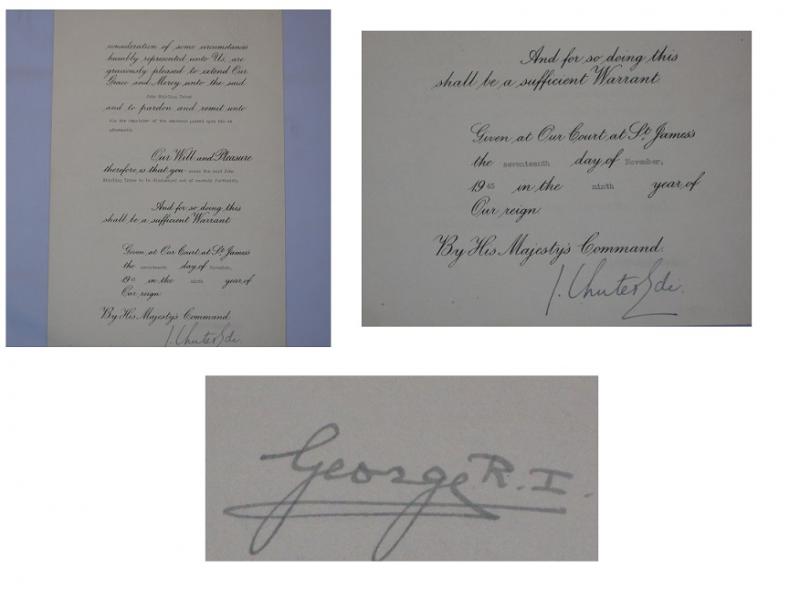 consideration of some circumstances
humbly represented unto Us, are
graciously pleased to extend Our
Grace and Mercy unto the said
John
and to pardon and remit unto
him the remainder of the sentence passed upon him as
aforesaid:
Our Will and Pleasure
therefore, is that you cause the said John
to be discharged out of custody forthwith.
And for so doing this
shall be a sufficient Warrant
Given at Our Court at St. James's
the seventeenth day of November,
1945 in the ninth year of
Our reign
By His Majesty's Command.
J. Chuter Ede.
And for so doing this
shall be a sufficient Warrant
Given at Our Court at St. James's
the seventeenth day of November,
1945 in the ninth year of
Our reign
By His Majesty's Command.
J. Chuter Ede.
George R.I.